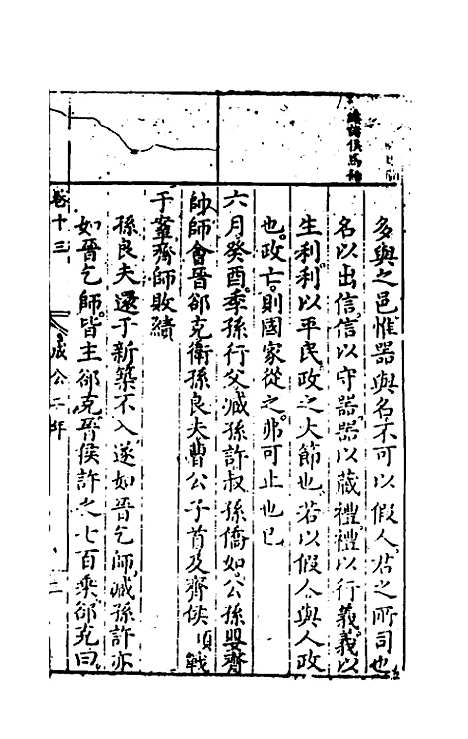 多與之邑惟器與名不可以假人君之所司也
名以出信信以守器器以藏禮禮以行義義以
生利利以平民政之大節也若以假人與人政
也政亡則國家從之弗可止也已
六月癸酉季孫行父臧孫許叔孫僑如公孫嬰齊
帥師會晉郤克衛孫良夫曹公子首及齊侯戰
于鞌齊師敗績
孫良夫還于新築不入遂如晉乞師臧孫許亦
如晉乞師皆主郤克晉侯許之七百乘郤克曰
卷十三 成公二年